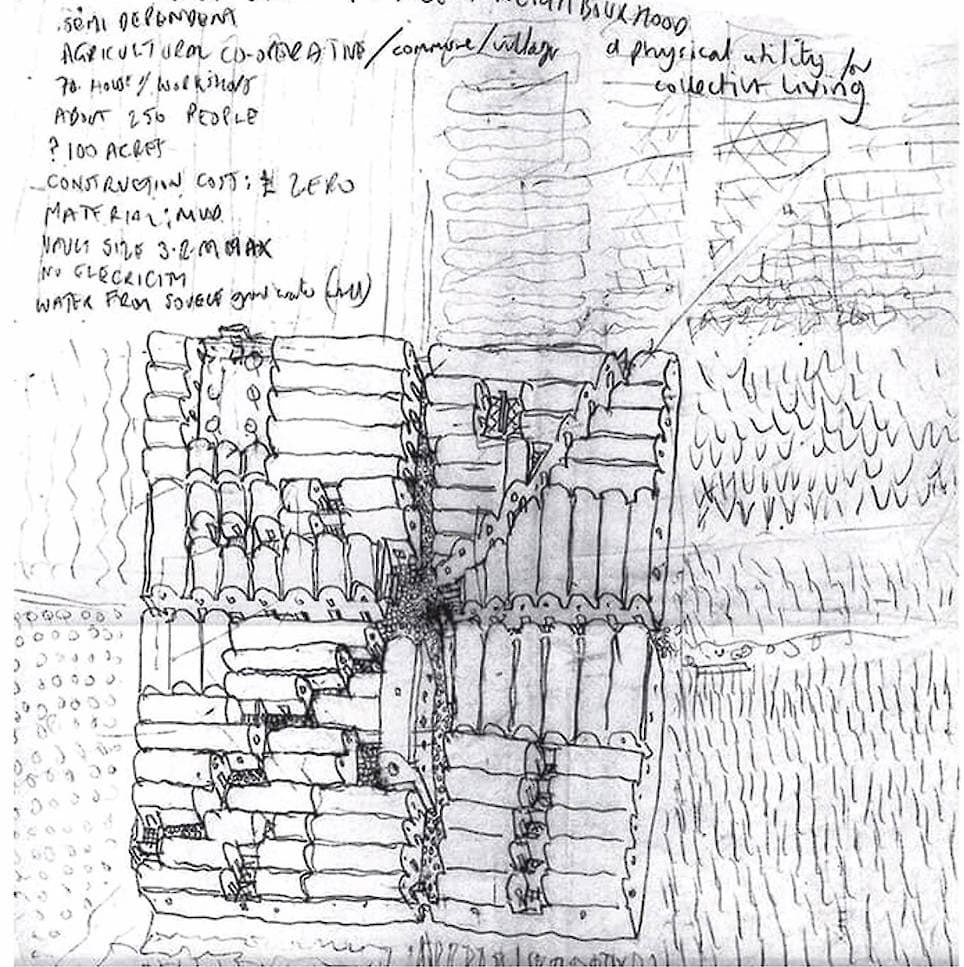 NEIGHBOURHOOD
SEMI DEPENDENT
AGRICULTURAL CO-OPERATIVE/commune/village
70 HOUSE/WORKSHOPS
ABOUT 250 PEOPLE
? 100 ACRES
CONSTRUCTION COST: £ ZERO
MATERIAL: MUD
VAULT SIZE 3.2 M MAX
NO ELECRICITY
WATER FROM SOURCE ground water (well)
a physical utility for
collective living